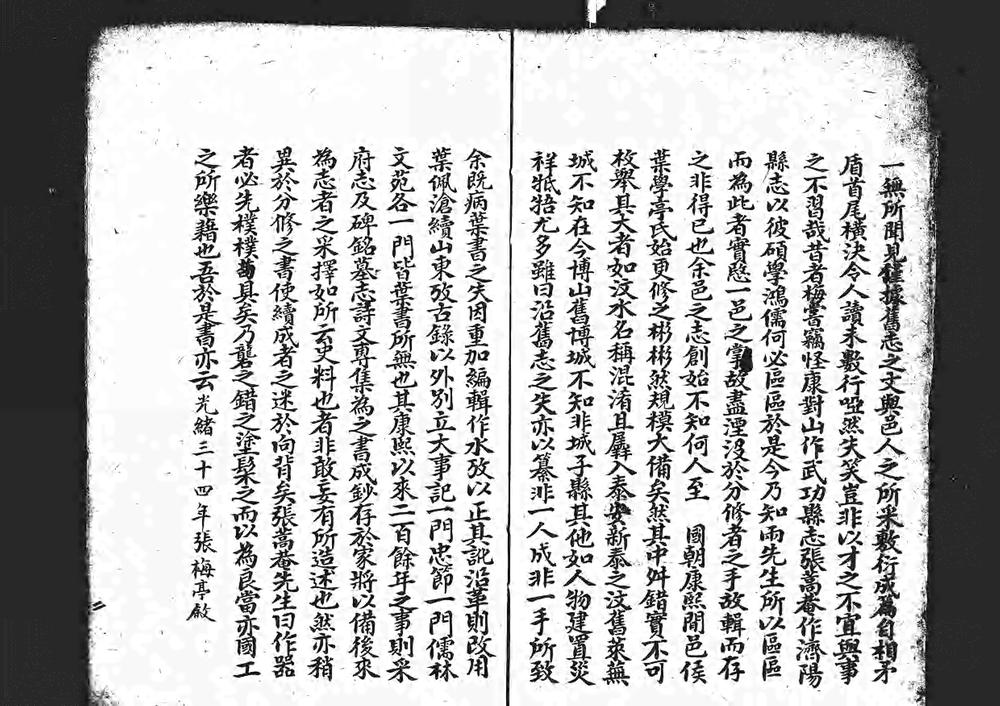 一無所聞見僅據舊志之文與邑人之所采敷衍成篇自相矛
盾首尾橫決令人讀未數行啞然失笑豈非以才之不宜與事
之不習哉昔者梅嘗竊怪康對山作武功縣志張蒿菴作濟陽
縣志以彼碩學鴻儒何必區區於是今乃知兩先生所以區區
而為此者實慭一邑之掌故盡湮沒於分修者之手故輯而存
之非得已也余邑之志創始不知何人至　國朝康熙間邑侯
葉學亭氏始更修之彬彬然規模大備矣然其中舛錯實不可
枚舉具大者如汶水名稱混淆且羼入泰安新泰之汶舊萊蕪
城不知在今博山舊博城不知非城子縣其他如人物建置災
祥牴牾尤多雖曰沿舊志之失亦以纂非一人成非一手所致
余既病葉書之失因重加編輯作水攷以正其訛沿革則改用
葉佩滄續山東攷古錄以外別立大事記一門忠節一門儒林
文苑各一門皆葉書所無也其康熙以來二百餘年之事則采
府志及碑銘墓志詩文專集為之書成鈔存於家將以備後來
為志者之采擇如所云史料也者非敢妄有所造述也然亦稍
異於分修之書使續成者之迷於向背矣張蒿菴先生曰作器
者必先樸樸具矣乃礱之錯之塗髹之而以為良當亦國工
之所樂藉也吾於是書亦云光緒三十四年張梅亭啟
二